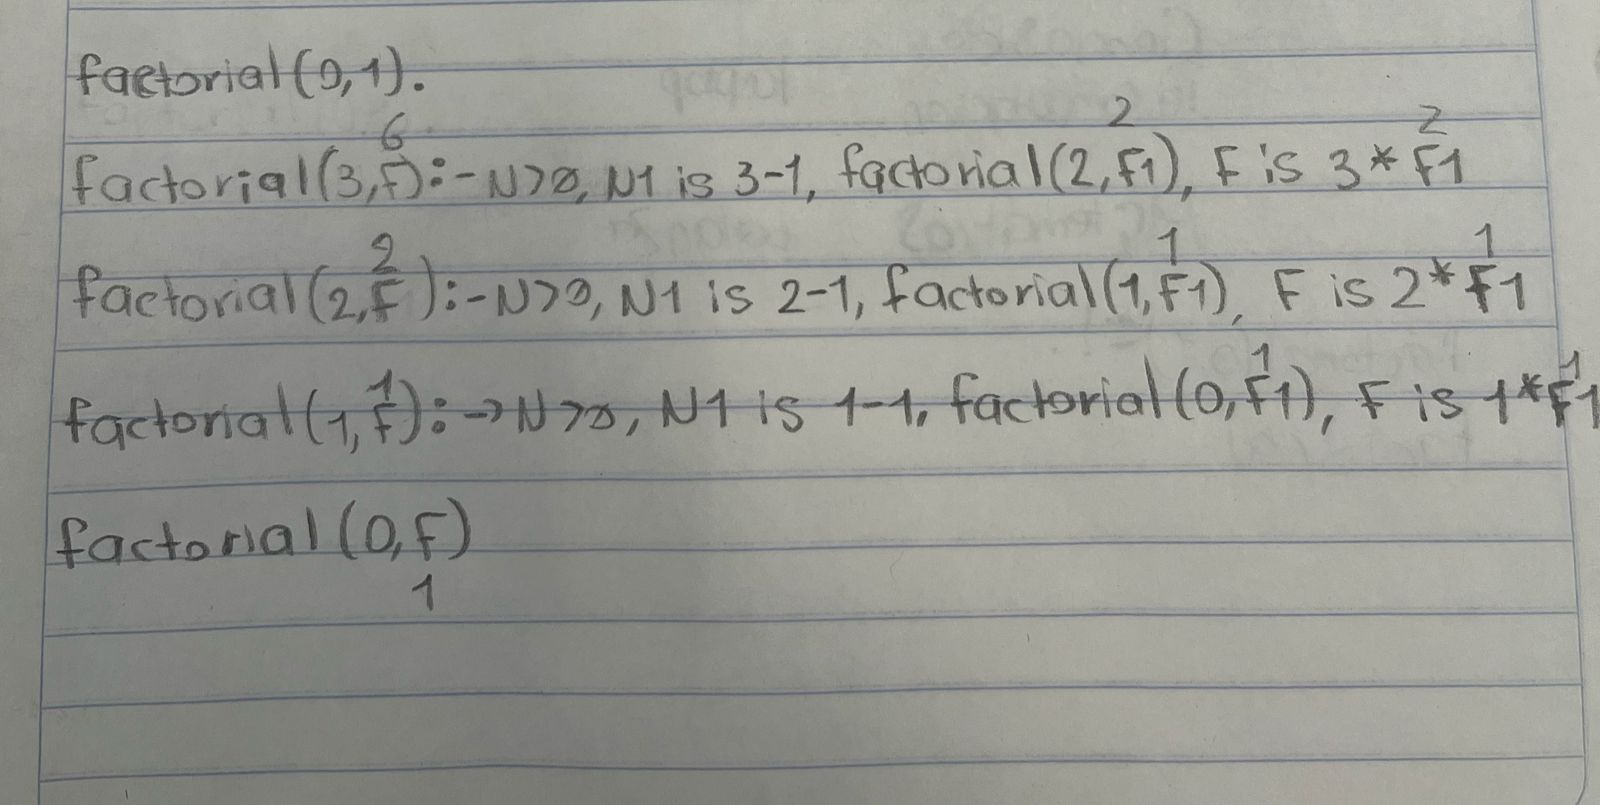 factorial(0,1).
6 2 2
factorial(3,F):-N>0, N1 is 3-1, factorial(2,F1), F is 3*F1
2 1 1
factorial(2,F):-N>0, N1 is 2-1, factorial(1,F1), F is 2*F1
1 1 1
factorial(1,F):->N>0, N1 is 1-1, factorial(0,F1), F is 1*F1
factorial(0,F)
1